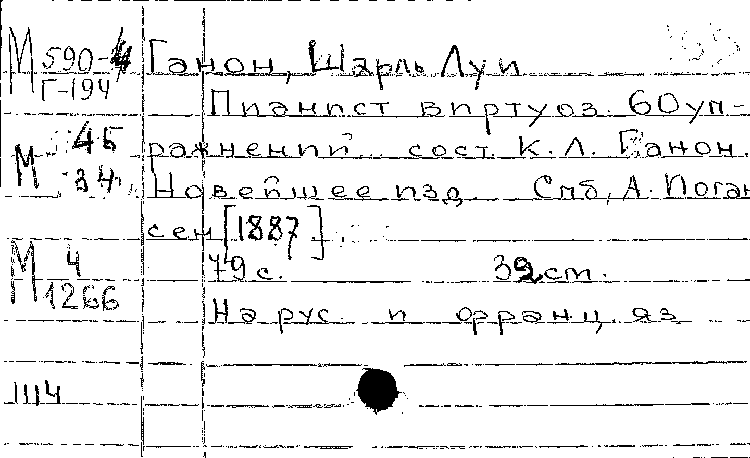 М 590-4 Ганон, Шарль Луи
Г-194
Пианист виртуоз. 60 уп-
М 45 ражнений сост. К. Л. Ганон.
34 Новейшее изд Спб, А. Иоган
сен [1887]
М 4 79 с. 32 см.
1266
На рус. и франц. яз
1114